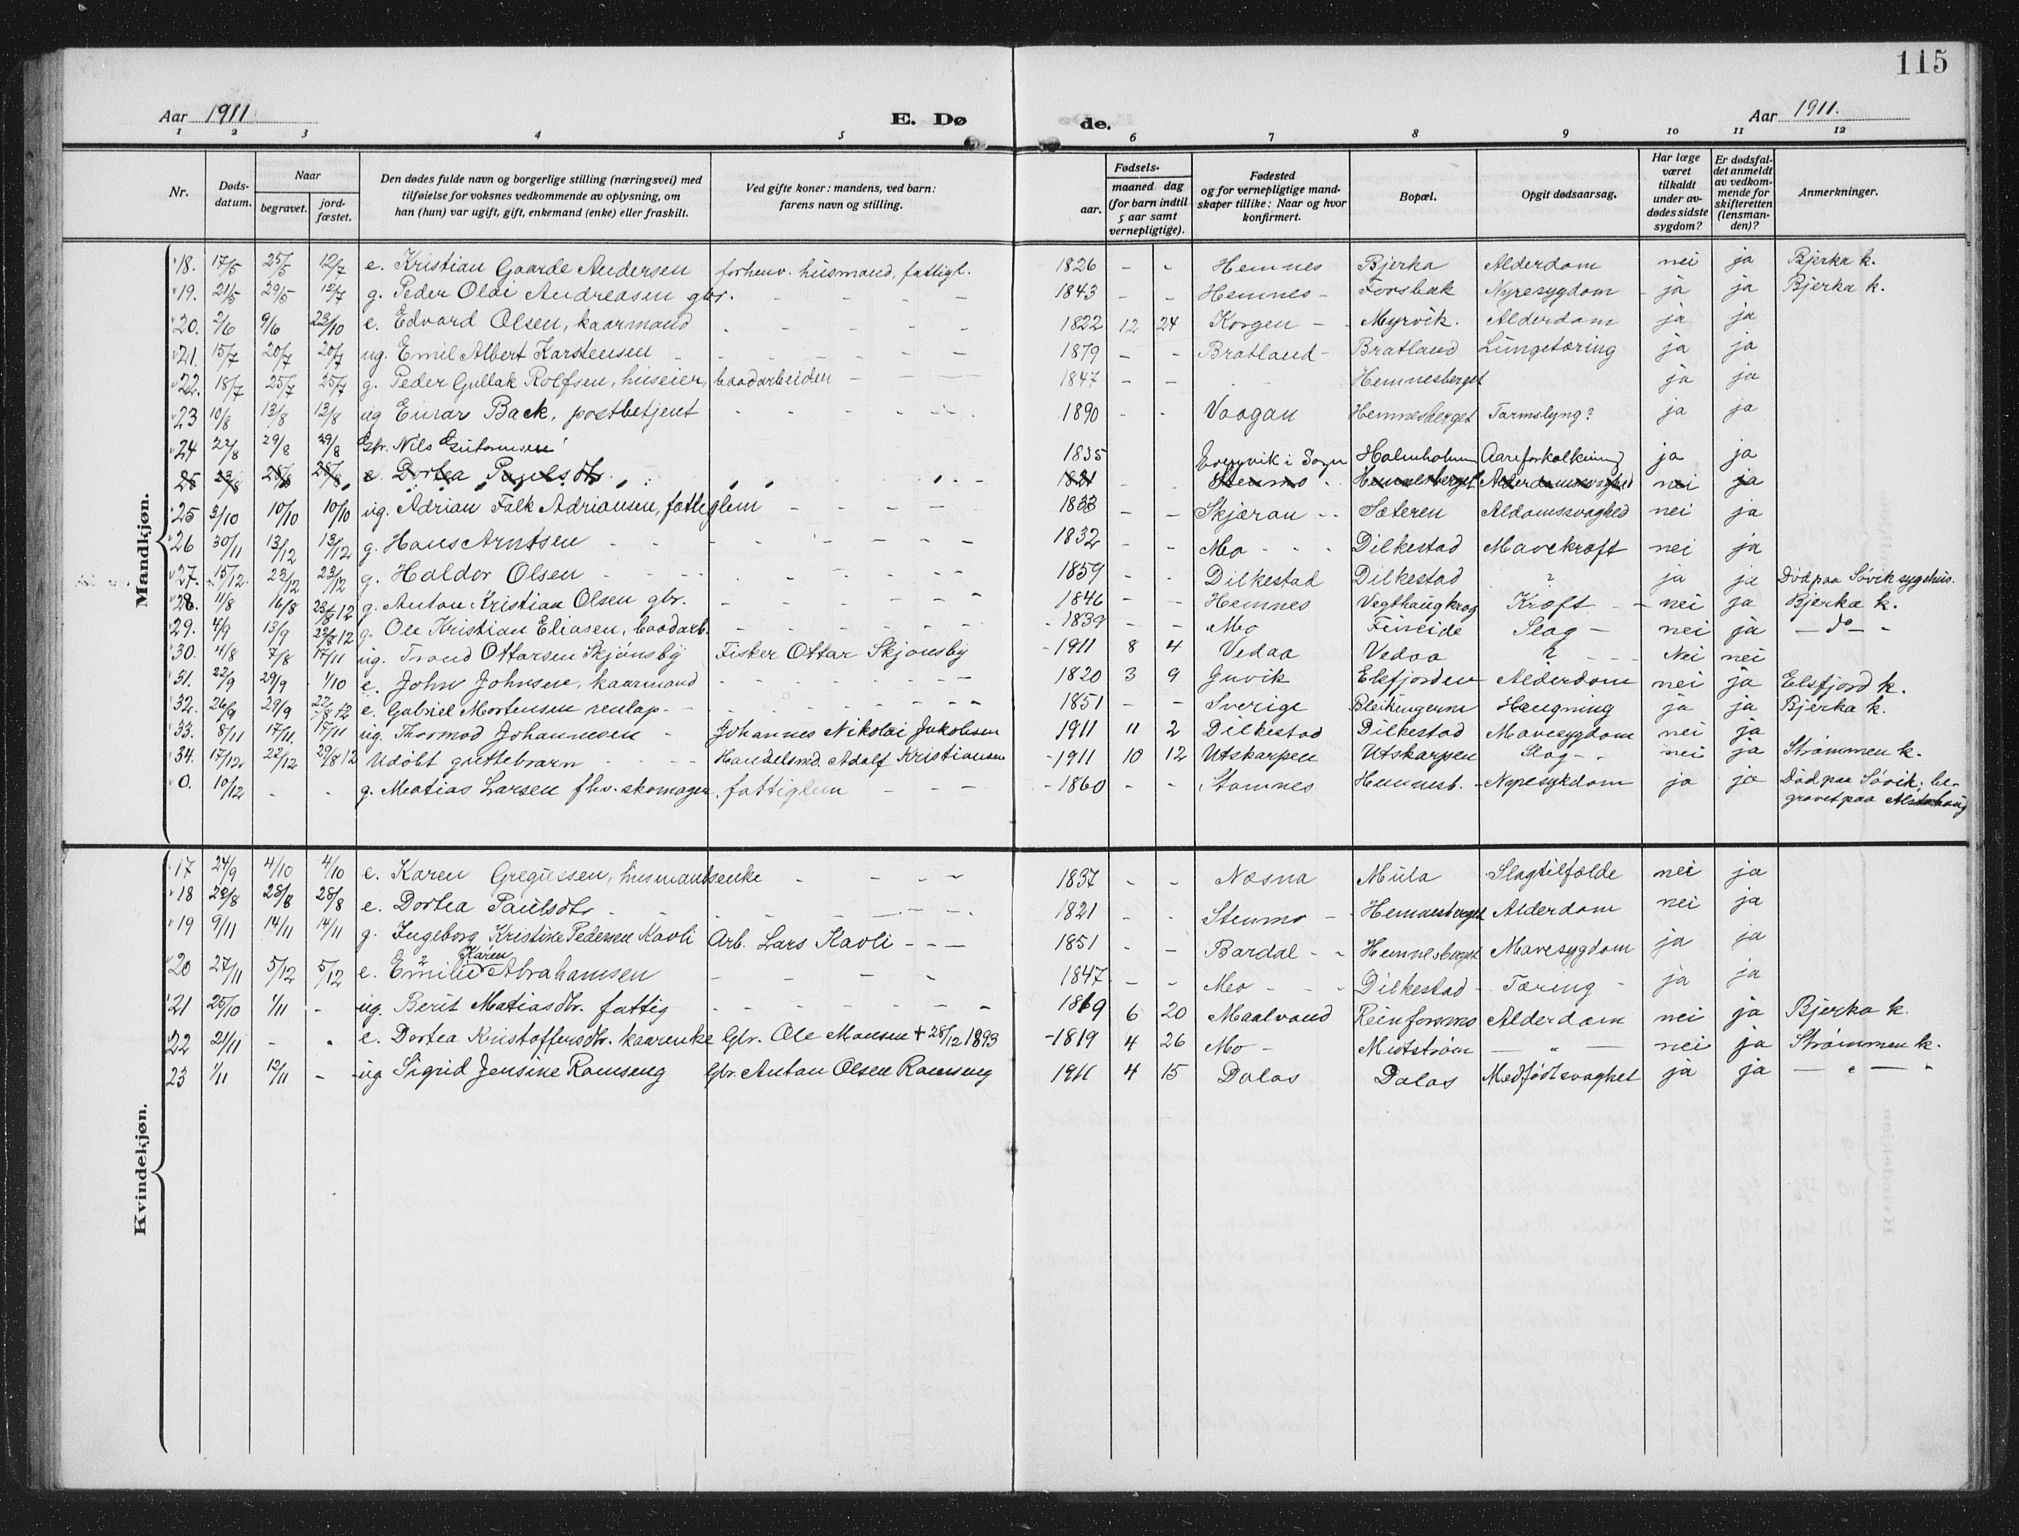 115
Aar 1911 E. Dø de. Aar 1911.
1 2 3 4 5 6 7 8 9 10 11 12
Nr. Døds-datum. Naar begravet. jord-fæstet. Den dødes fulde navn og borgerlige stilling (næringsvei) med tilføielse for voksnes vedkommende av oplysning, om han (hun) var ugift, gift, enkemand (enke) eller fraskilt. Ved gifte koner: mandens, ved barn: farens navn og stilling. Fødsels- aar. maaned dag (for barn indtil 5 aar samt vernepligtige). Fødested og for vernepligtige mand-skaper tillike: Naar og hvor konfirmert. Bopæl. Opgit dødsaarsag. Har læge været tilkaldt under av-dødes sidste sygdom? Er dødsfal-det anmeldt av vedkom-mende for skifteretten (lensman-den)? Anmerkninger.
Mandkjøn.
18. 17/5 25/5 12/7 e. Kristian Gaarde Andersen forhenv. husmand, fattigl. 1826 - - Hemnes Bjerka Alderdom nei ja Bjerka k.
19. 21/5 29/5 12/7 g. Peder Olai Andreasen gbr. - - - 1843 - - Hemnes - Forsbak Nyresygdom - ja ja Bjerka k.
20. 2/6 9/6 23/10 e. Edvard Olsen, kaarmand - - - - - 1822 12 24 Korgen - - Myrvik. Alderdom ja ja
21. 15/7 20/7 20/7 ug. Emil Albert Karstensen - - - - - 1879 - - Bratland - Bratland Lungetæring ja ja
22. 18/7 25/7 25/7 g. Peder Gullak Rolfsen, huseier, baadarbeider - - - 1847 - - - Hemnesberget ja ja
23 10/8 13/8 13/8 ug Einar Back, postbetjent - - - - - 1890 - - Vaagan Hemnesberget Tarmslyng? ja ja
24 22/8 29/8 29/8 Gbr. Nils 1835 i Sogn Holmholmen Aareforkalkning ja ja
25 23/8 28/8 28/8 e. Dortea Paulsdtr. 1821 - - Stenmo - Hemnesberget Alderdomssvaghed nei ja
25 3/10 10/10 10/10 ug. Adrian Falk Adriansen, fattiglem - - - - 1833 - - Skjæran - - Sæteren Aldomssvaghed nei ja
26 30/11 13/12 13/12 g. Hans Arntsen - - - - - 1832 - - Mo - - - Dilkestad Mavekræft nei ja
27. 15/12. 23/12 23/12 g. Haldor Olsen - - - - - 1859 - - Dilkestad Dilkestad ? ja ja Død paa Søvik sygehus.
28. 11/8 16/8 23/8 12 g. Anton Kristian Olsen gbr. - - - - - 1846 - - Hemnes Vegthaugkrog Kræft - - nei ja Bjerka k.
29. 4/9 13/9 22/8 12 g. Ole Kristian Eliasen, baadarb. - - - - - 1839 - - Mo Fineide Slag - nei ja - do - -
30. 4/8 7/8 17/11 ug. Trond Ottarsen Skjønsby Fisker Ottar Skjønsby - 1911 8 4 Vedaa Vedaa ? - - - Nei nei
31. 22/9 29/9 1/10 e. John Johnsen, kaarmand - - - - - 1820 3 9 Juvik Elsfjorden Alderdom nei ja Elsfjord k.
32. 26/9 29/9 22/8 12 e. Gabriel Mortensen renlap - - - - - 1851 - - Sverige Hængning ja ja Bjerka k.
33. 8/11 17/11 17/11 ug. Thormod Johannesen - Johannes Nikolai Jakobsen 1911 11 2 Dilkestad Dilkestad Mavesygdom nei ja
34. 17/12. 22/12 29/8 12 Udøbt guttebarn - - - - Handelsmd. Adolf Kristiansen - 1911 10 12 Utskarpen Utskarpen Slag - - nei ja Strømmen k.
0. 10/12 - - g. Matias Larsen fhv. skomager, fattiglem - - - - 1860 - - Stamnes Hemnesb. - Nyresykdom ja ja Død paa Søvik; be-gravet paa Alstahaug
Kvindekjøn.
17 24/9 4/10 4/10 e. Karen Gregussen, husmandsenke - - - - 1837 - - Næsna Mula Slagtilfælde nei ja
18 23/8 28/8 28/8 e. Dortea Paulsdtr. - - - - - 1821 - - Stenmo - Hemnesberget Alderdom nei ja
19 9/11 14/11 14/11 g. Ingeborg Kristine Pedersen Kavli Arb. Lars Kavli - - - 1851 - - Bardal - - Hemnesberget Mavesygdom ja ja
20 27/11 5/12 5/12 e. Emilie Karen Abrahamsen - - - - 1847 - - Mo - - - Dilkestad - Tæring - ja ja
21 25/10 1/11 - ug. Berit Matiasdtr. fattig - - - - - 1869 6 20 Maalvand Reinfornes Alderdom nei ja Bjerka k.
22 21/11 - - e. Dortea Kristoffersdtr. kaarenke Gbr. Ole Monsen + 28/12 1893 - 1819 4 26 Mo - Midtstrøm - " - nei ja Strømmen k.
23 1/11 12/11 - ug Sigrid Jensine Ramseng Gbr. Anton Olsen Ramseng 1911 4 15 Dalas Dalas Medfødt svaghet ja ja - " - -